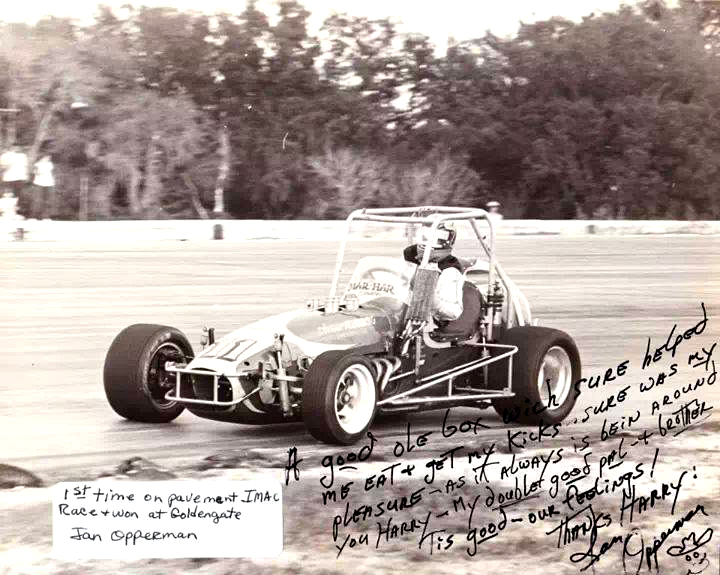 11
MAR-HAR
1st time on pavement IMAC
Race + won at Goldengate
Jan Opperman
A good ole box wich sure helped
me eat + get my kicks - sure was my
pleasure - as it always is bein around
you Harry - my double good pal - + brother
Tis good - our feelings!
Thanks Harry!
Jan Opperman